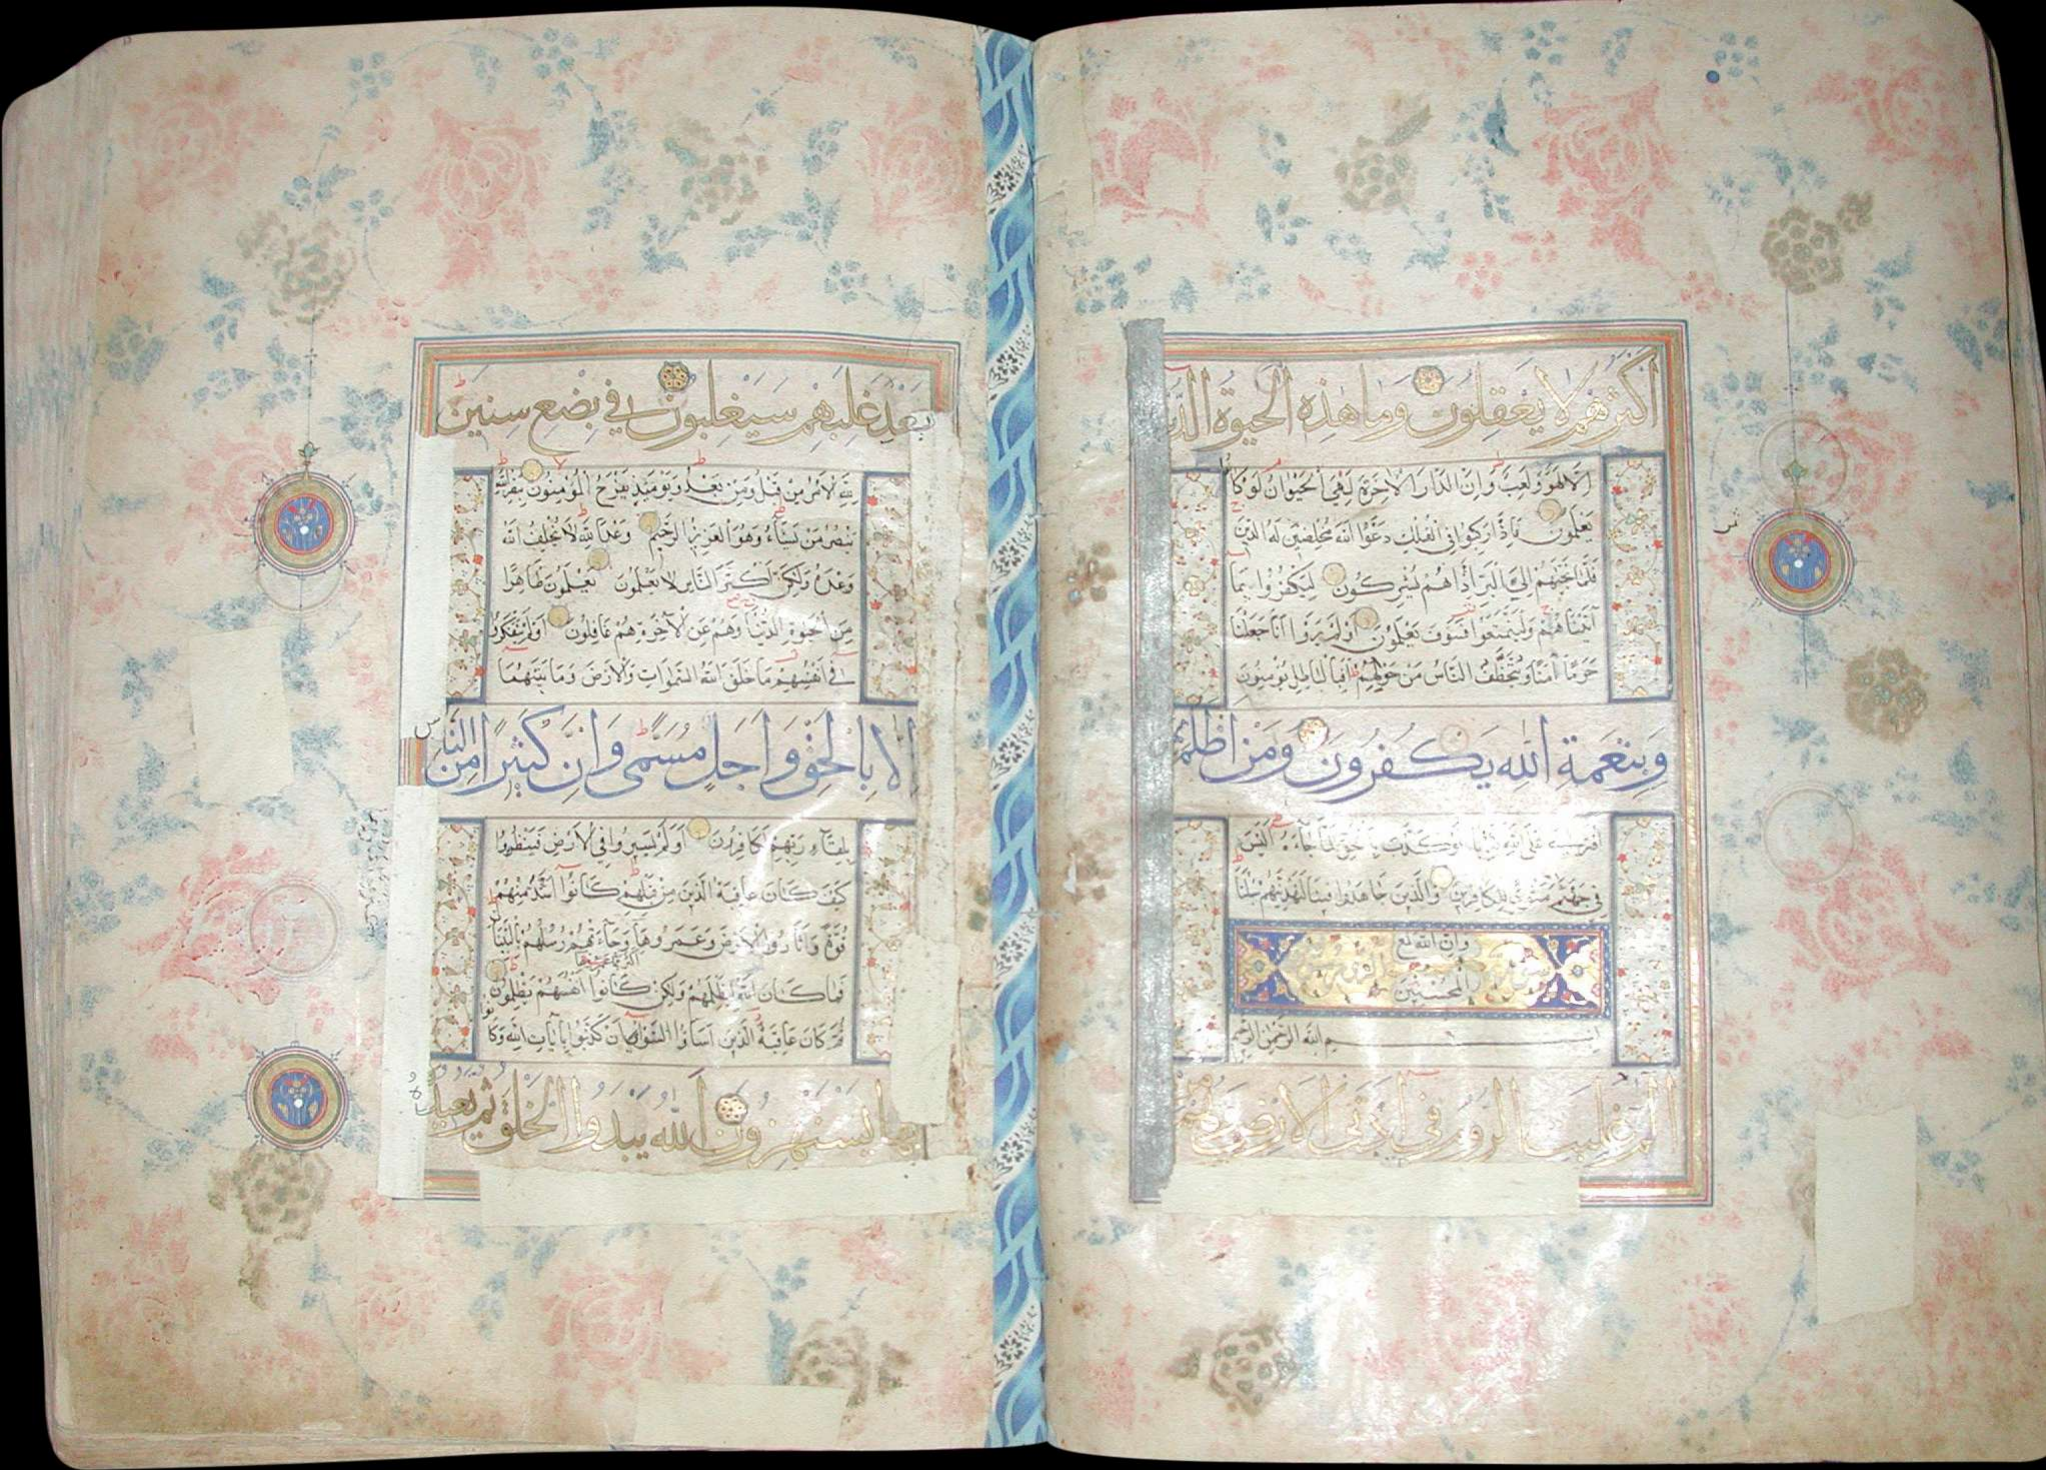 اكثرهم لا يعقلون وما هذه الحيوة الدنيا
الا لهو ولعب وان الدار الاخرة لهي الحيوان لو كانوا
يعلمون فاذا ركبوا في الفلك دعوا الله مخلصين له الدين
فلما نجيهم الي البر اذا هم يشركون ليكفروا بما
آتيناهم وليتمتعوا فسوف يعلمون اولم يروا انا جعلنا
حرما آمنا ويتخطف الناس من حولهم افبالباطل يؤمنون
وبنعمة الله يكفرون ومن اظلم
افترى على الله كذبا او كذب بالحق لما جاءه اليس
في جهنم مثوى للكافرين والذين جاهدوا فينا لنهدينهم سبلنا
وان الله لمع
المحسنين
بسم الله الرحمن الرحيم
الم غلبت الروم في ادنى الارض وهم من
بعد غلبهم سيغلبون في بضع سنين
لله الامر من قبل ومن بعد ويومئذ يفرح المؤمنون بنصر الله
ينصر من يشاء وهو العزيز الرحيم وعد الله لا يخلف الله
وعده ولكن اكثر الناس لا يعلمون يعلمون ظاهرا
من الحيوة الدنيا وهم عن الآخرة هم غافلون اولم يتفكروا
في انفسهم ما خلق الله السموات والارض وما بينهما
الا بالحق واجل مسمى وان كثيرا من الناس
بلقاء ربهم لكافرون اولم يسيروا في الارض فينظروا
كيف كان عاقبة الذين من قبلهم كانوا اشد منهم
قوة واثاروا الارض وعمروها وجاءتهم رسلهم بالبينات
اكثر مما عمروها
فما كان الله ليظلمهم ولكن كانوا انفسهم يظلمون
ثم كان عاقبة الذين اساؤا السواى ان كذبوا بآيات الله وكانوا
بها يستهزؤن الله يبدؤا الخلق ثم يعيده